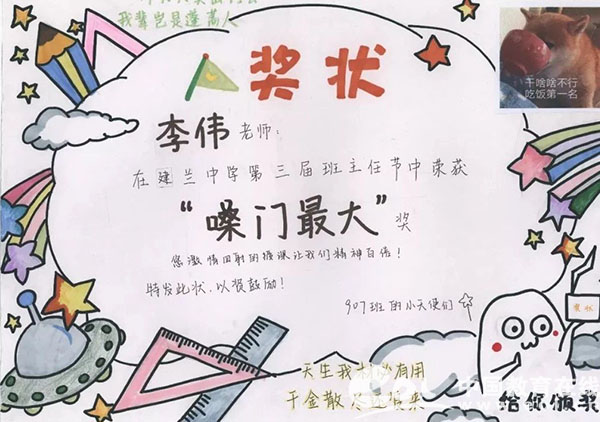 我辈岂是蓬蒿人
奖状
干啥啥不行
吃饭第一名
李伟老师：
在建兰中学第三届班主任节中荣获
“嗓门最大”奖
您激情四射的授课让我们精神百倍！
特发此状，以资鼓励！
907班的小天使们
奖状
天生我材必有用
千金散尽还复来
中国教育在线
给你颁奖